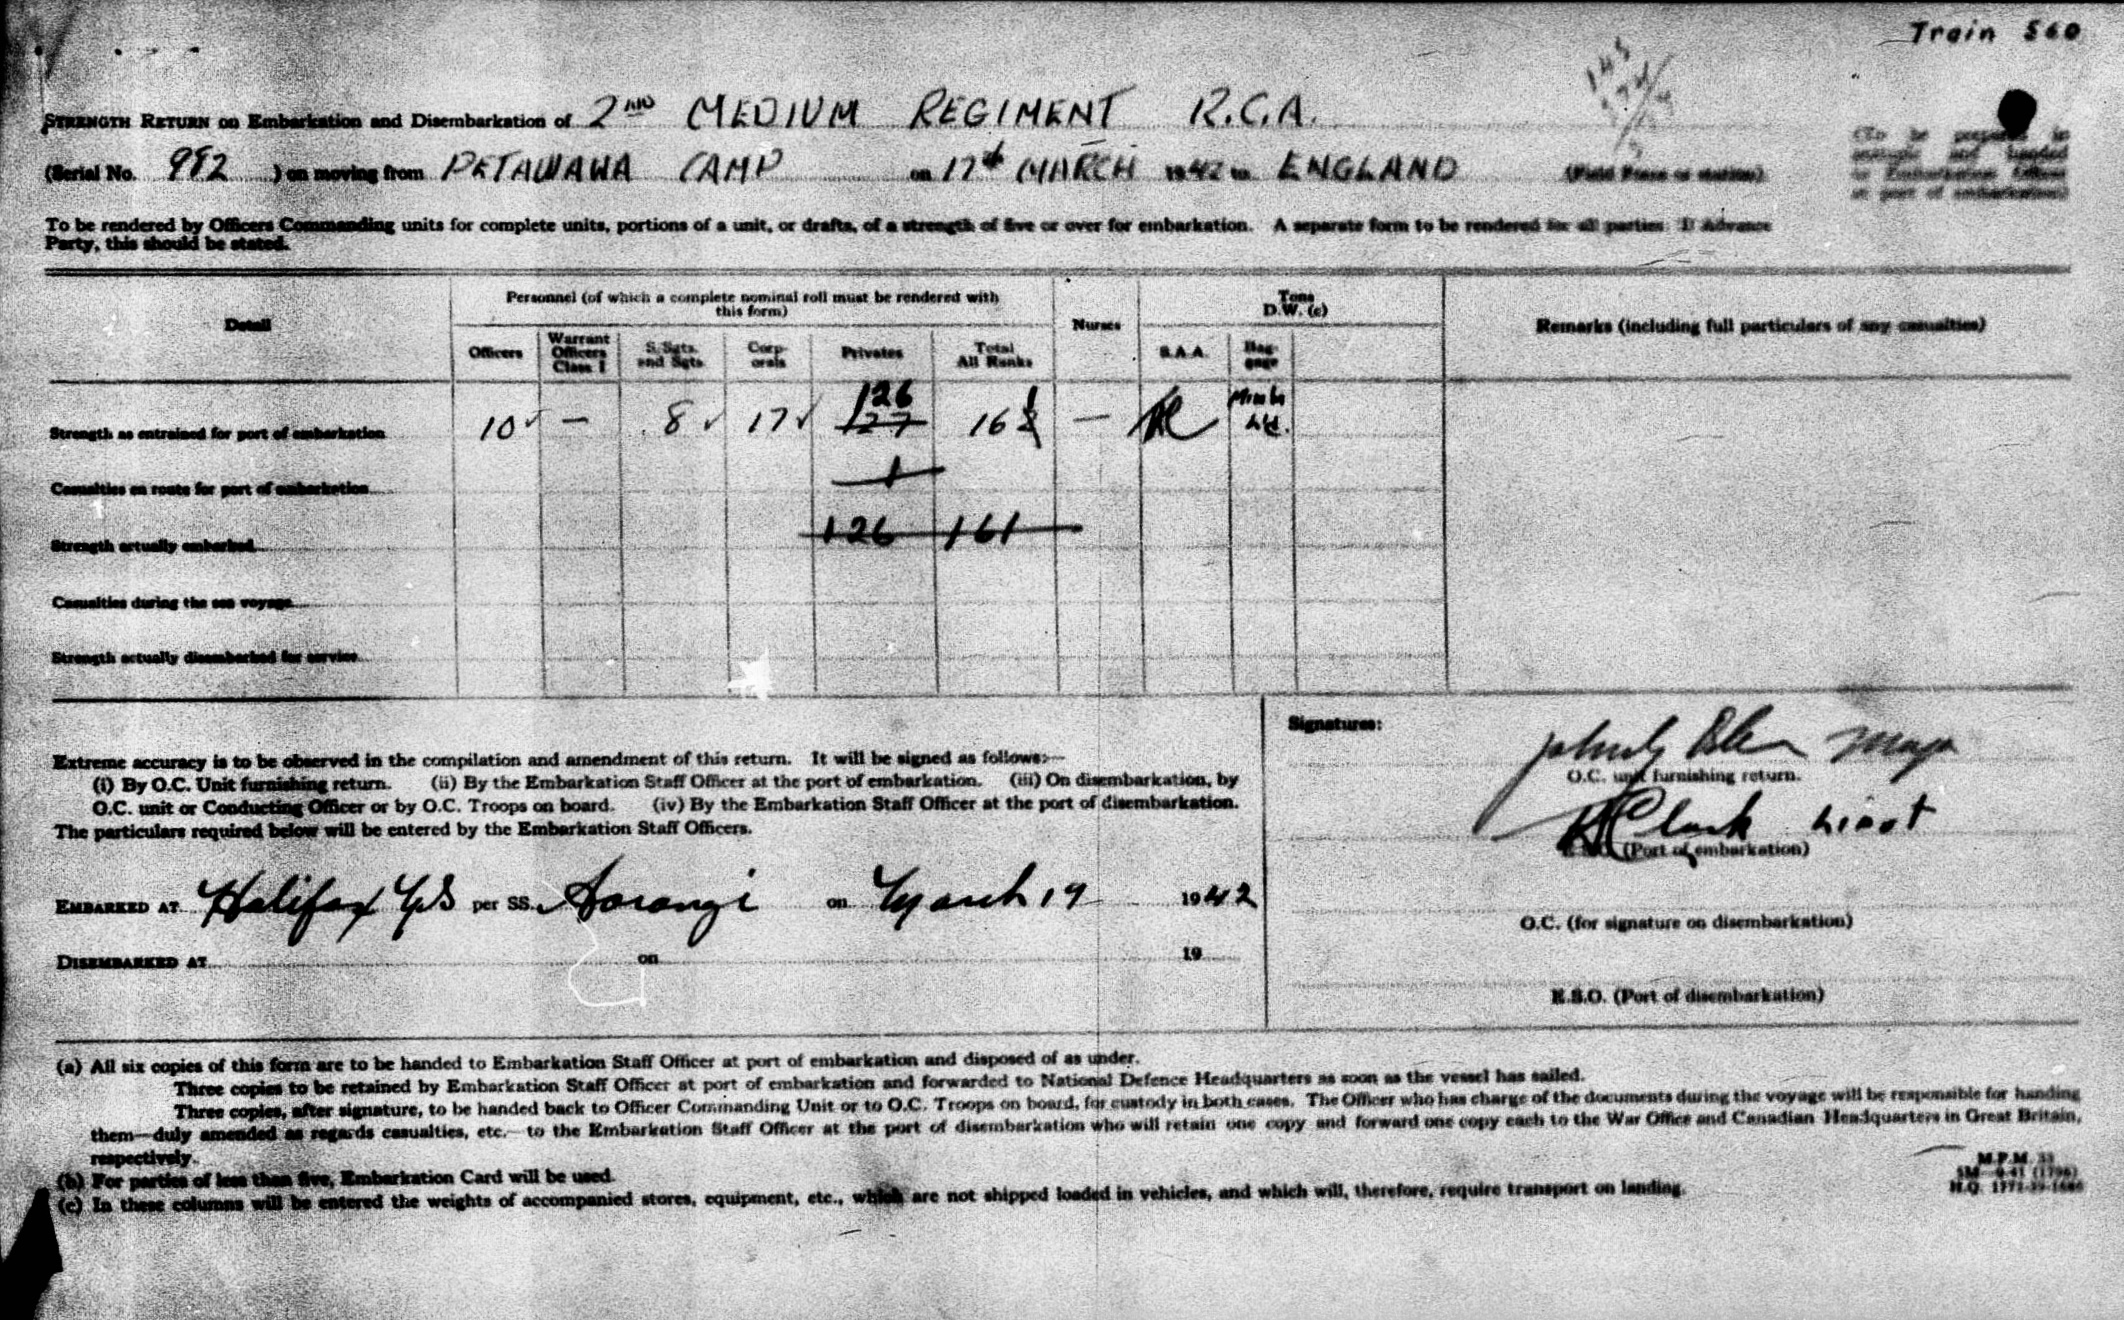 Train 560
STRENGTH RETURN on Embarkation and Disembarkation of 2ND MEDIUM REGIMENT R.C.A.
(Serial No. 992 ) on moving from PETAWAWA CAMP on 17th MARCH 1942 to ENGLAND
(To be prepared in
and handed
to Embarkation Officer
at port of embarkation)
To be rendered by Officers Commanding units for complete units, portions of a unit, or drafts, of a strength of five or over for embarkation. A separate form to be rendered for all parties. If Advance
Party, this should be stated.
Detail
Personnel (of which a complete nominal roll must be rendered with
this form)
Nurses
Tons
D.W. (c)
Remarks (including full particulars of any casualties)
Officers
Warrant
Officers
Class I
S/Sgts.
and Sgts.
Corp-
orals
Privates
Total
All Ranks
S.A.A.
Bag-
gage
126
Strength as entrained for port of embarkation 10 ✓ — 8 ✓ 17 ✓ 127 161 —
Casualties en route for port of embarkation 1
Strength actually embarked 126 161
Casualties during the sea voyage
Strength actually disembarked for service
Signatures:
Extreme accuracy is to be observed in the compilation and amendment of this return. It will be signed as follows:—
(i) By O.C. Unit furnishing return. (ii) By the Embarkation Staff Officer at the port of embarkation. (iii) On disembarkation, by
O.C. unit or Conducting Officer or by O.C. Troops on board. (iv) By the Embarkation Staff Officer at the port of disembarkation.
The particulars required below will be entered by the Embarkation Staff Officers.
Major
O.C. unit furnishing return.
Clark Lieut
E.S.O. (Port of embarkation)
EMBARKED AT Halifax NS per SS. Aorangi on March 19 1942
O.C. (for signature on disembarkation)
DISEMBARKED AT on 19
E.S.O. (Port of disembarkation)
(a) All six copies of this form are to be handed to Embarkation Staff Officer at port of embarkation and disposed of as under.
Three copies to be retained by Embarkation Staff Officer at port of embarkation and forwarded to National Defence Headquarters as soon as the vessel has sailed.
Three copies, after signature, to be handed back to Officer Commanding Unit or to O.C. Troops on board, for custody in both cases. The Officer who has charge of the documents during the voyage will be responsible for handing
them—duly amended as regards casualties, etc.—to the Embarkation Staff Officer at the port of disembarkation who will retain one copy and forward one copy each to the War Office and Canadian Headquarters in Great Britain,
respectively.
(b) For parties of less than five, Embarkation Card will be used.
(c) In these columns will be entered the weights of accompanied stores, equipment, etc., which are not shipped loaded in vehicles, and which will, therefore, require transport on landing.
M.F.M. 33
5M—9-41 (1796)
H.Q. 1771-39-1686